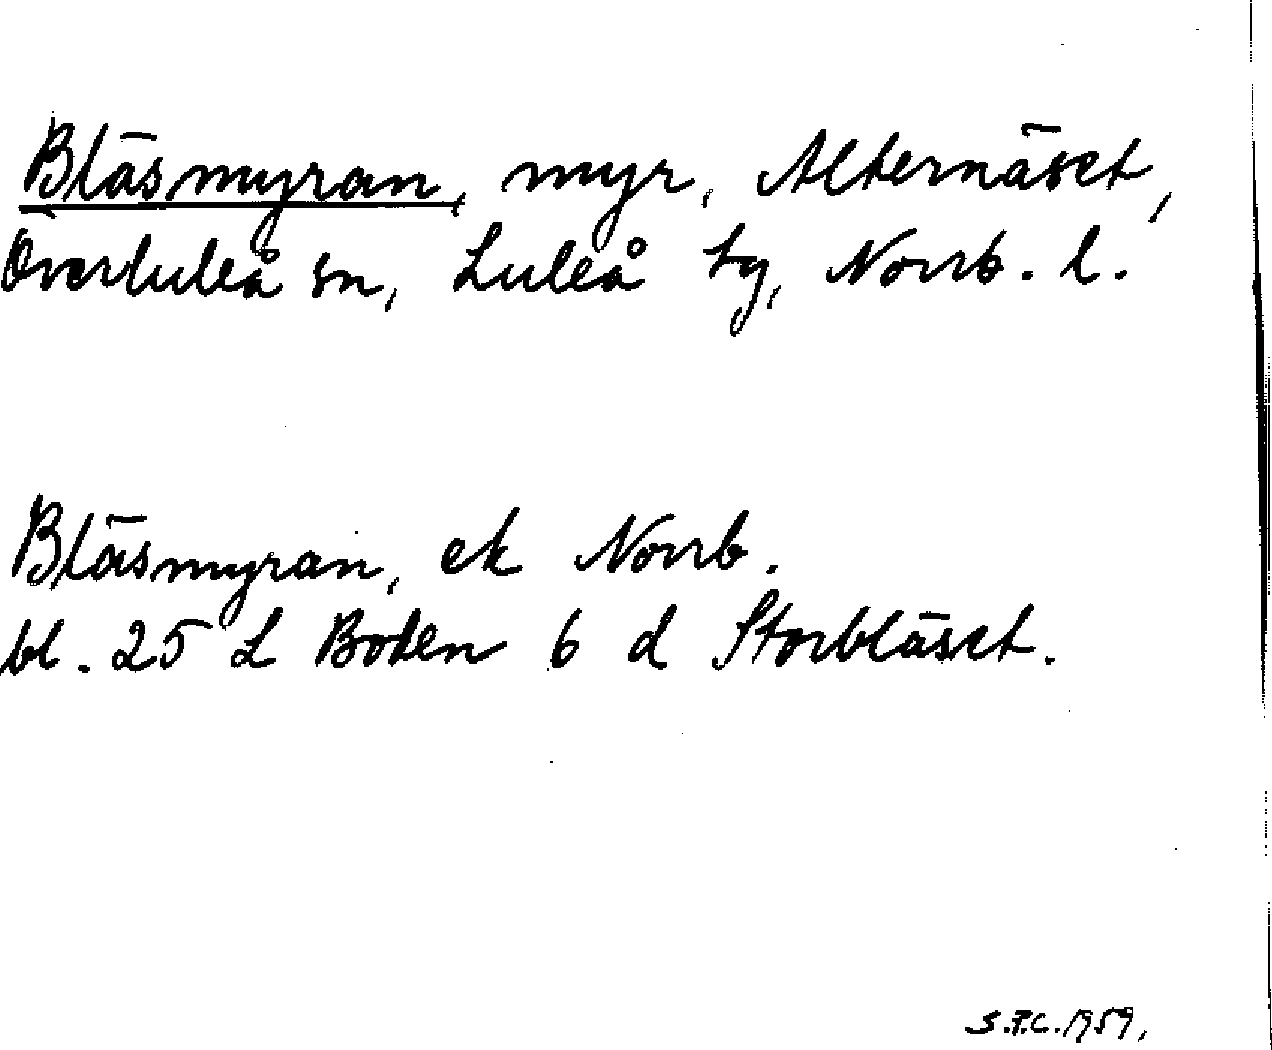 Bläsmyran, myr, Alternäset,
Överluleå sn, Luleå tg, Norrb. l.
Bläsmyran, ek Norrb.
bl. 25 L Boden 6 d Storbläset.
S.F.C. 1959,